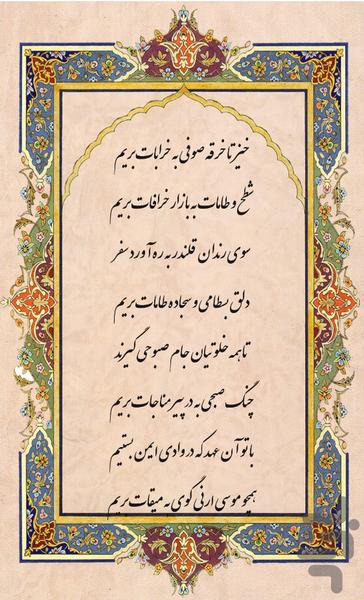 خیز تا خرقه صوفی به خرابات بریم
شطح و طامات به بازار خرافات بریم
سوی رندان قلندر به ره آورد سفر
دلق بسطامی و سجاده طامات بریم
تا همه خلوتیان جام صبوحی گیرند
چنگ صبحی به در پیر مناجات بریم
با تو آن عهد که در وادی ایمن بستیم
همچو موسی ارنی گوی به میقات بریم